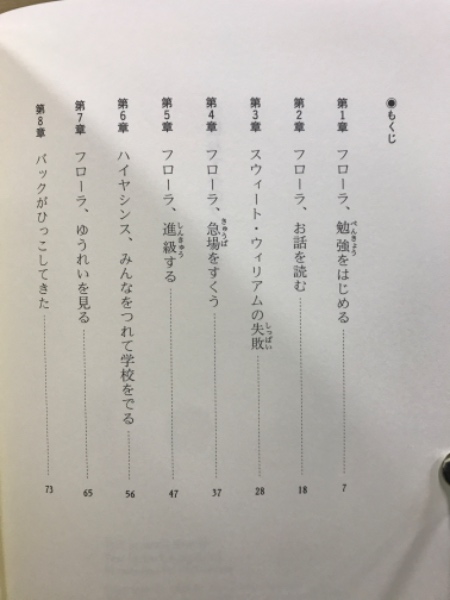 ◉もくじ
第1章 フローラ、勉強をはじめる 7
べんきょう
第2章 フローラ、お話を読む 18
第3章 スウィート・ウィリアムの失敗 28
しっぱい
第4章 フローラ、急場をすくう 37
きゅうば
第5章 フローラ、進級する 47
しんきゅう
第6章 ハイヤシンス、みんなをつれて学校をでる 56
第7章 フローラ、ゆうれいを見る 65
第8章 バックがひっこしてきた 73